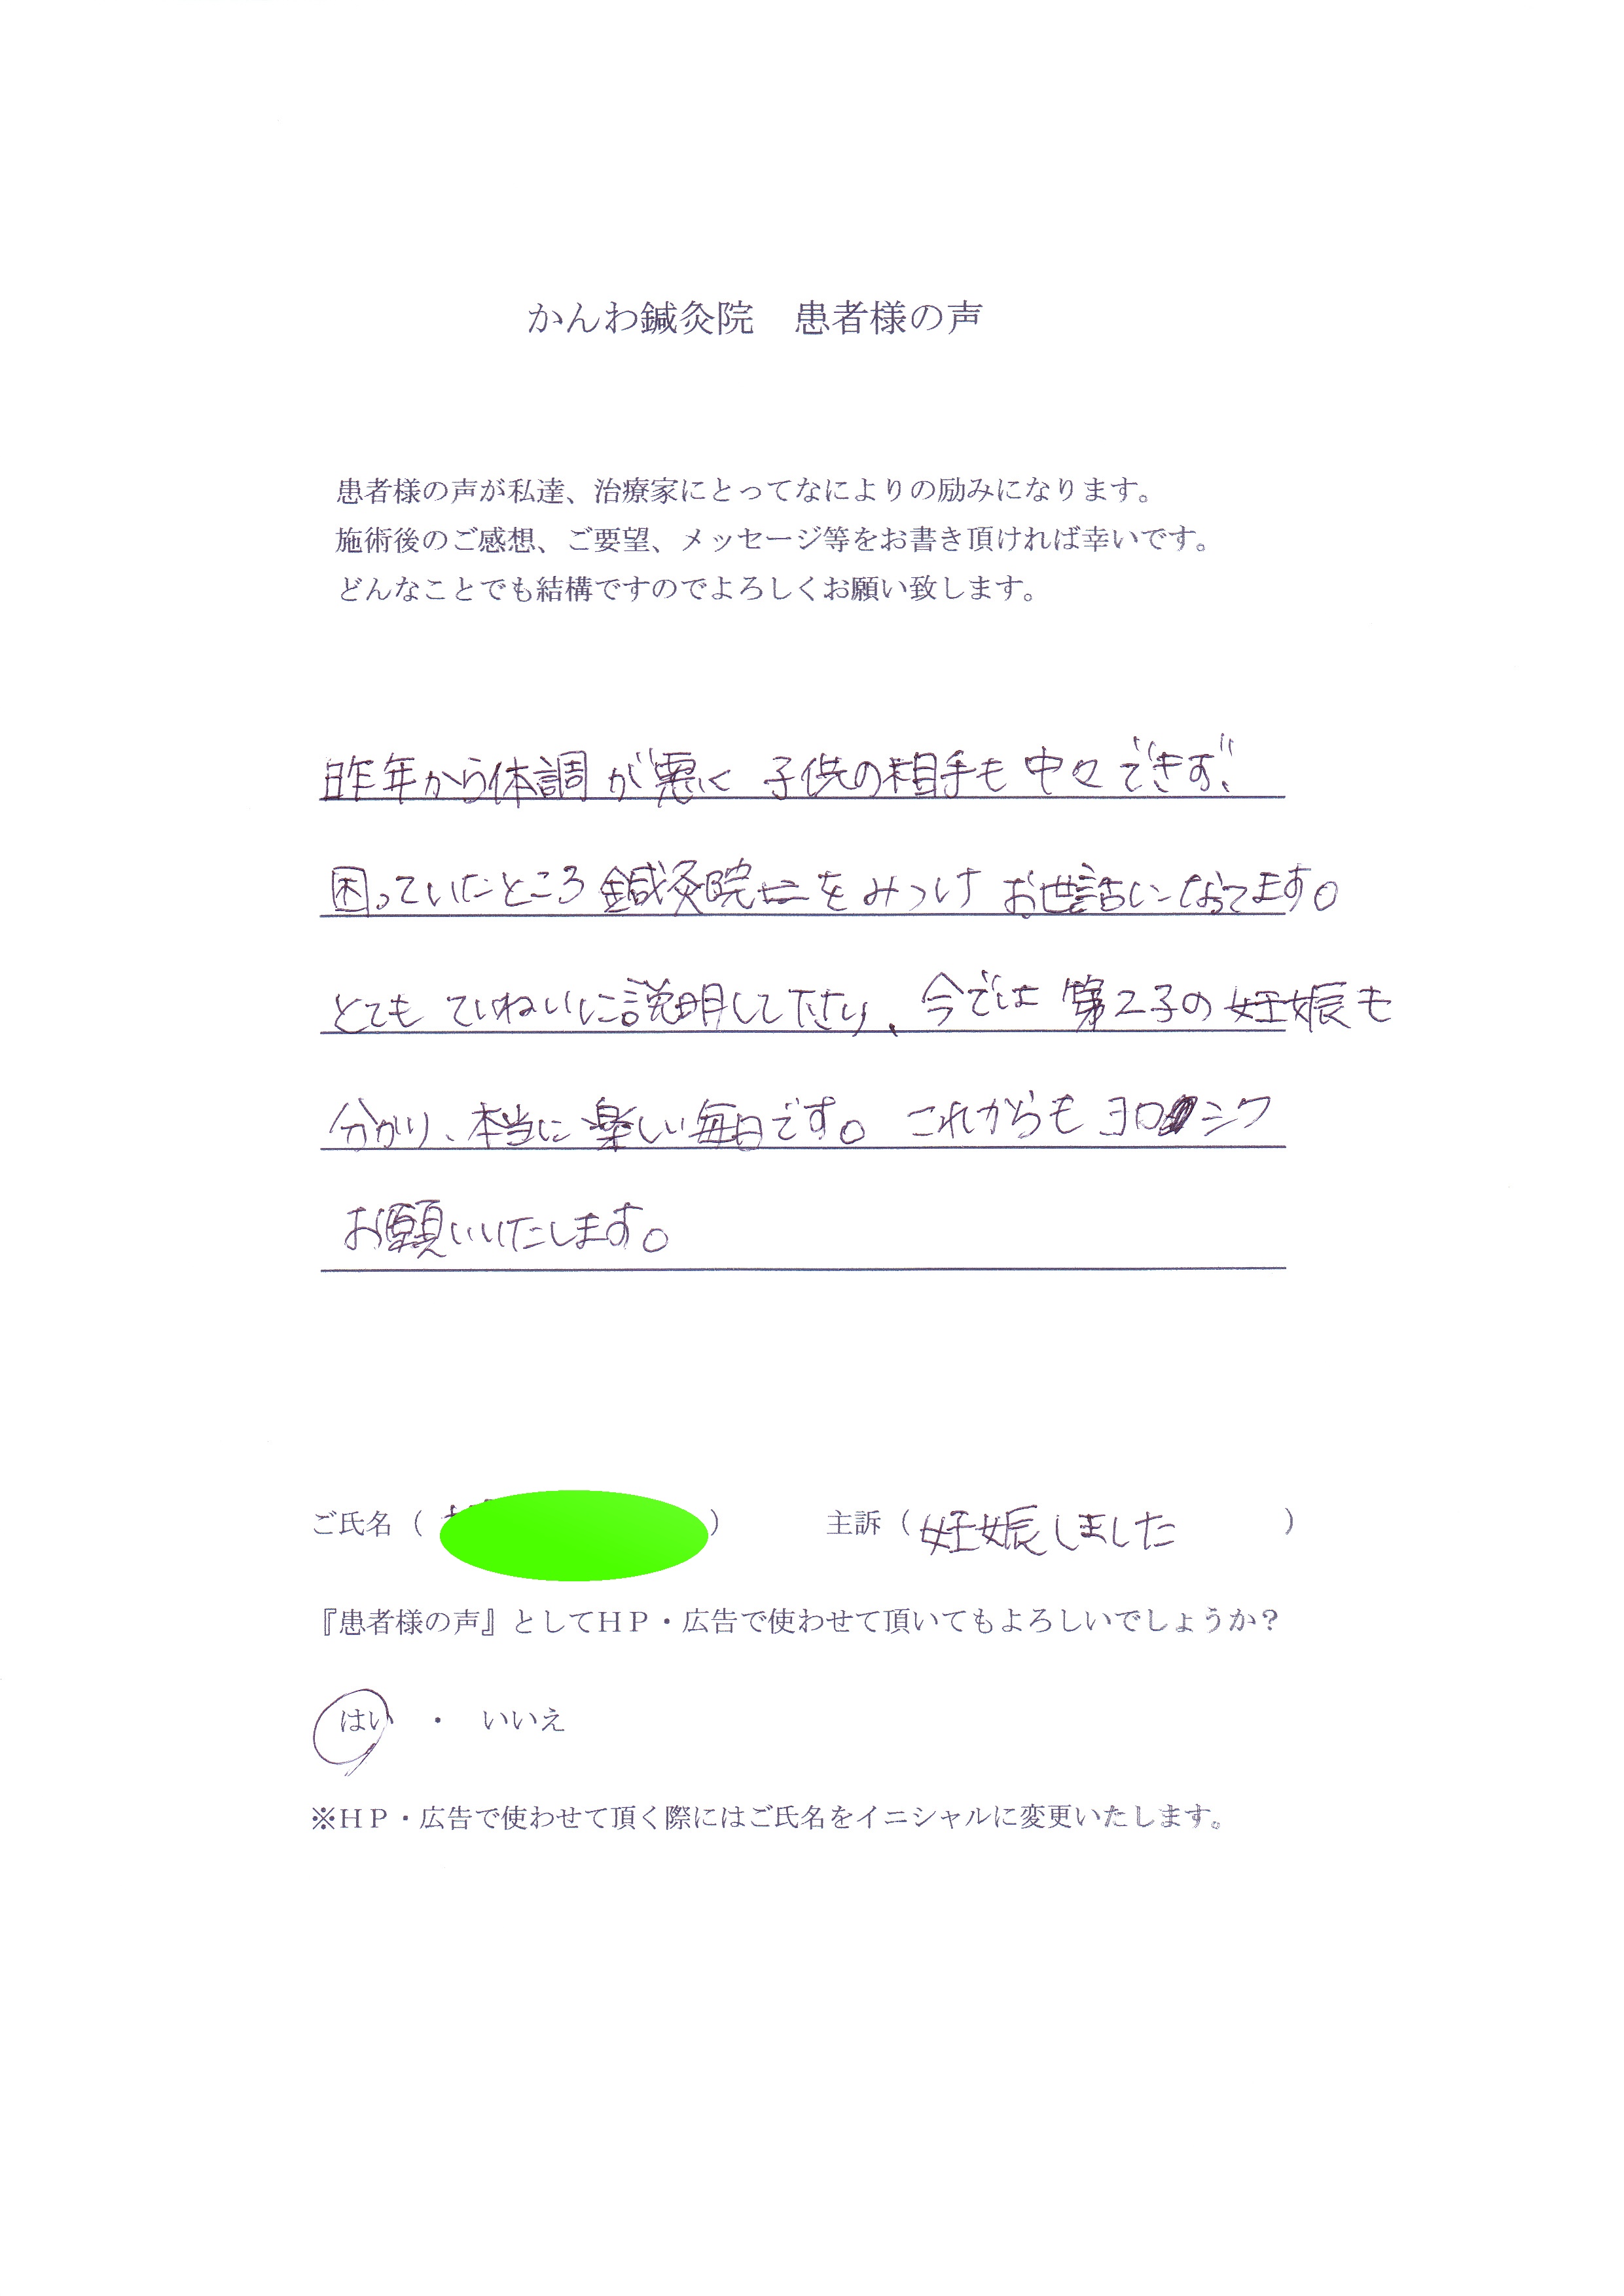 かんわ鍼灸院　患者様の声
患者様の声が私達、治療家にとってなによりの励みになります。
施術後のご感想、ご要望、メッセージ等をお書き頂ければ幸いです。
どんなことでも結構ですのでよろしくお願い致します。
昨年から体調が悪く 子供の相手も中々できず、
困っていたところ鍼灸院をみつけ お世話になってます。
とても ていねいに説明して下さり、今では 第2子の妊娠も
分かり、本当に楽しい毎日です。これからもヨロシク
お願いいたします。
ご氏名（　　　）　主訴（妊娠しました　）
『患者様の声』としてＨＰ・広告で使わせて頂いてもよろしいでしょうか？
はい　・　いいえ
※ＨＰ・広告で使わせて頂く際にはご氏名をイニシャルに変更いたします。